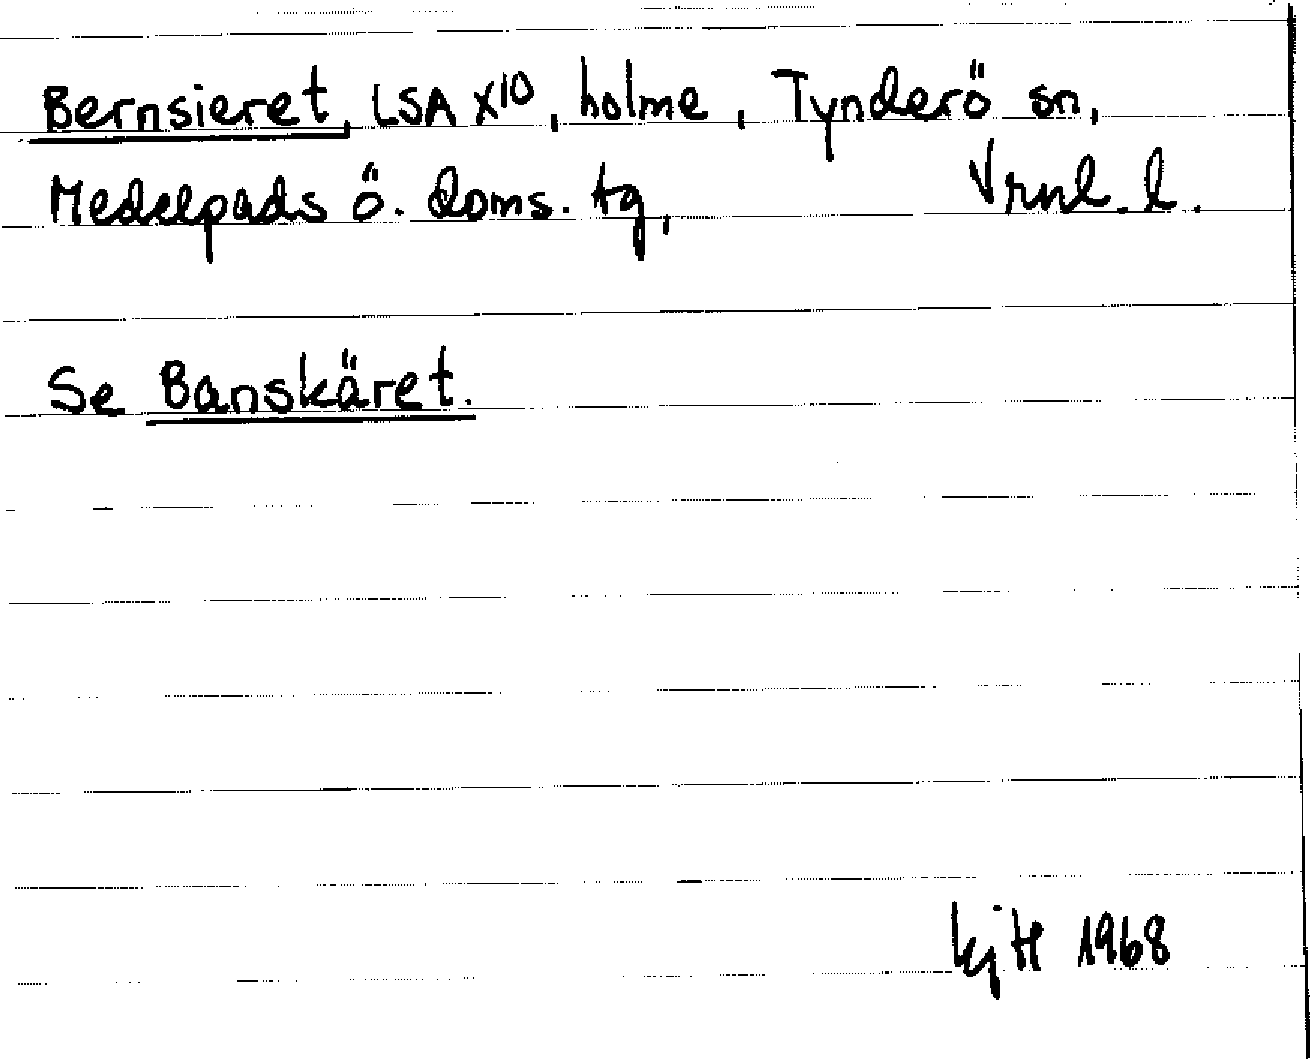 Bernsieret, LSA X10, holme, Tynderö sn,
Medelpads ö. doms. tg, Vrnl. l.
Se Banskäret.
kjH 1968